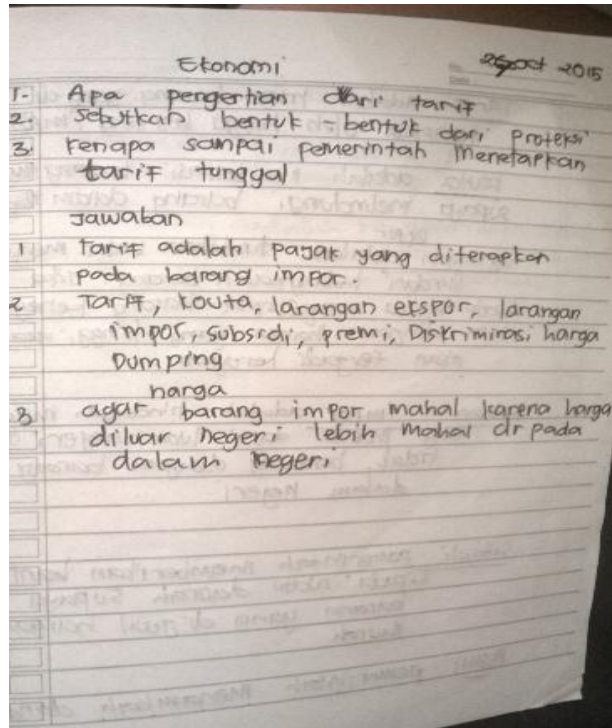 Ekonomi
oct 2015
1. Apa pengertian dari tarif
2. Sebutkan bentuk-bentuk dari proteksi
3. Kenapa sampai pemerintah menetapkan
tarif tunggal
Jawaban
1 Tarif adalah pajak yang diterapkan
pada barang impor.
2 Tarif, kouta, larangan ekspor, larangan
impor, subsidi, premi, Diskriminasi harga
Dumping
harga
3 agar barang impor mahal karena harga
diluar negeri lebih mahal dr pada
dalam negeri